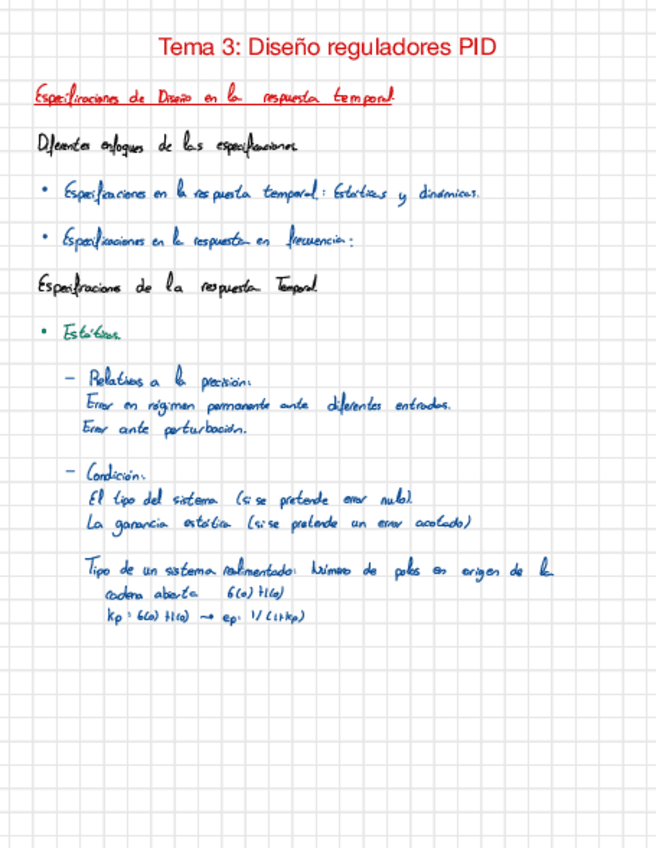 Tema 3: Diseño reguladores PID
Especificaciones de Diseño en la respuesta temporal.
Diferentes enfoques de las especificaciones
• Especificaciones en la respuesta temporal: Estáticas y dinámicas.
• Especificaciones en la respuesta en frecuencia:
Especificaciones de la respuesta Temporal
• Estáticas
– Relativas a la precisión:
Error en régimen permanente ante diferentes entradas.
Error ante perturbación.
– Condición:
El tipo del sistema (si se pretende error nulo)
La ganancia estática (si se pretende un error acotado)
Tipo de un sistema realimentado: Número de polos en origen de la
cadena abierta G(0) H(0)
kp = G(0) H(0) → ep = 1/(1+kp)